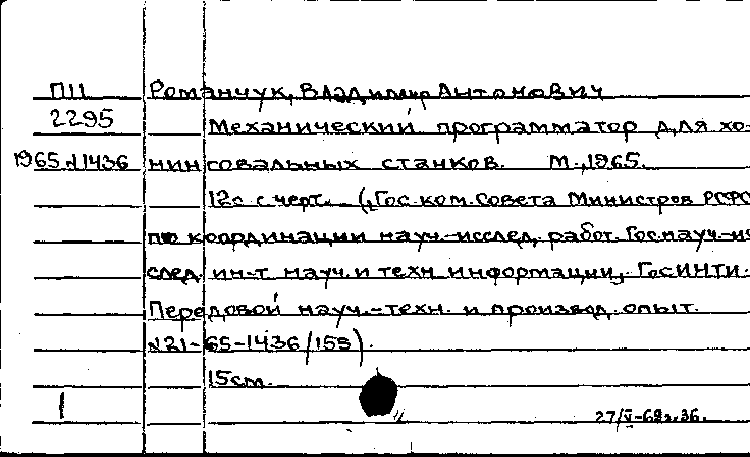 ПII Романчук, Владимир Антонович
2295 Механический программатор для хо-
1965 №1436 нинговальных станков. М., 1965.
12с с черт. (Гос. ком. Совета Министров РСФС
по координации науч.-исслед. работ. Гос.науч.-ис
след. ин-т науч. и техн информации, ГОСИНТИ.
Передовой науч.-техн. и производ. опыт.
№21-65-1436/158).
15см.
1
27/V-69г. 36.